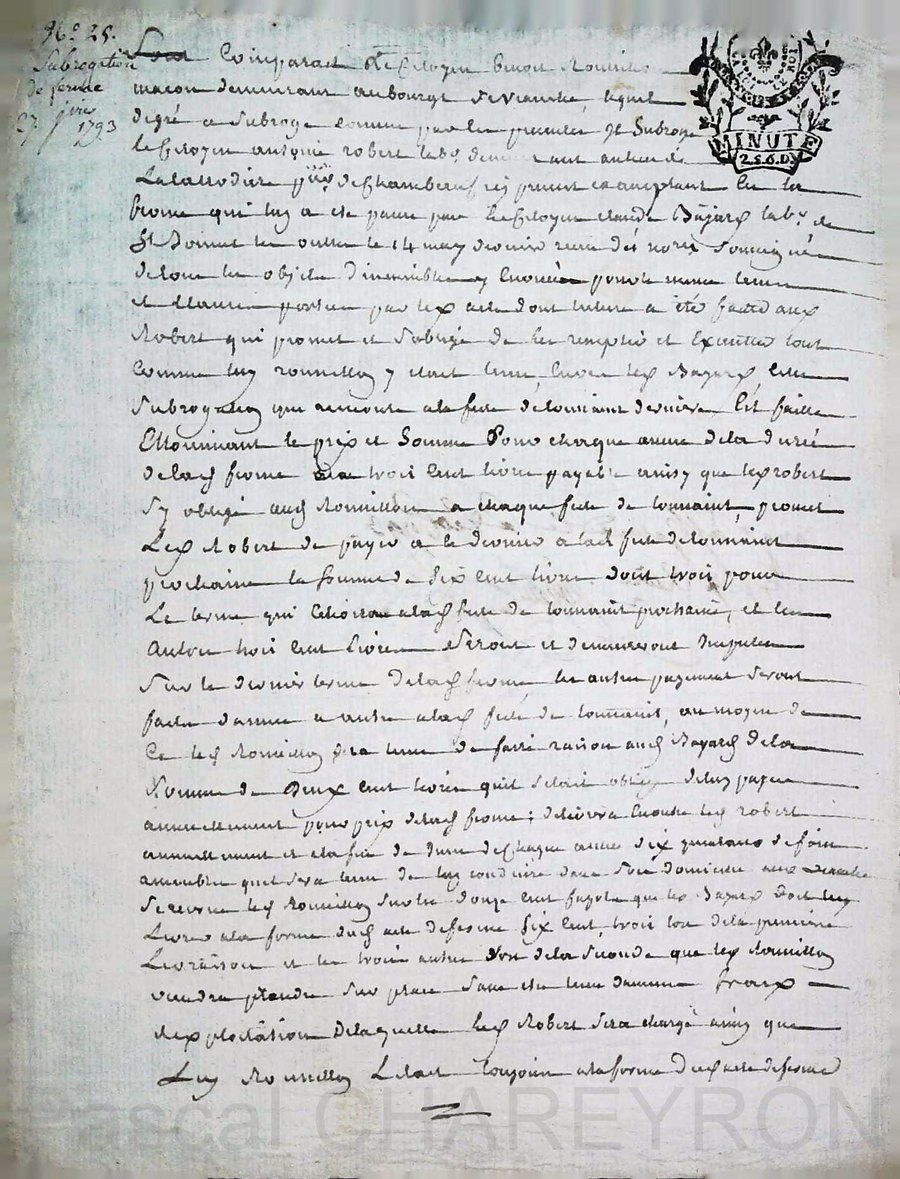 N.º 25.
Subrogation
de ferme
27 jvier
1793
LA LOI LE ROI
MINUTE
2.S.6.D.
Comparait le Citoyen benoit Rouvillon
macon demeurant au bourg de vianche, lequel
degré a Subrogé comme par les presentes il Subroge
le Citoyen antoine robert lab.r demeurant au lieu de
psse de Chambeuf icy present et acceptant En la
ferme qui luy a été passée par le Citoyen claude Bajard lab.r de
St Bonnet les oulles le 14 may dernier recue des nores Soussignés
de tous les objets d'immeubles y Enoncés pour le meme tems
et clauses portées par led acte dont lecture a été faitte aud
Robert qui promet et s'oblige de les remplir et Executer tout
Comme luy rouvillon y etait tenu Envers led Bajard, Cette
Subrogation qui remonte a la fete de toussaint derniere Est faitte
Et Moyennant le prix et Somme Pour chaque année de la durée
de lad ferme de trois Cent livres payable ainsy que led robert
s'y oblige aud Rouvillon a chaque fete de toussaint, promet
Led Robert de payer a ce dernier a lad fete de toussaint
prochaine la somme de Six Cent livres dont trois pour
Le terme qui Echoira a lad fete de toussaint prochaine, et les
Autres trois Cent livres Seront et demeureront Imputés
Sur le dernier terme de lad ferme, les autres payements Seront
faits d'année a autre a lad fete de toussaint, au moyen de
Ce led Rouvillon sera tenu de faire raison aud Bajard de la
Somme de Deux Cent livres qu'il s'etait obligé de luy payer
annuellement pour prix de lad ferme; delivrera Encore led robert
annuellement et a la fin de de Chaque année dix quintaux de foin
qu'il sera tenu de luy conduire dans Son domicile
Se reserve led Rouvillon Sur les douze Cent fagots que led Bajard doit luy
Livrer a la forme dud acte de ferme Six Cent, trois lors de la premiere
Livraison et les trois autres lors de la Seconde que led Rouvillon
viendra prendre Sur place Sans etre tenu d'aucuns fraix
d'exploitation De laquelle led Robert sera chargé ainsy que
Luy Rouvillon L'etait toujours a la forme Dud acte de ferme
Pascal CHAREYRON